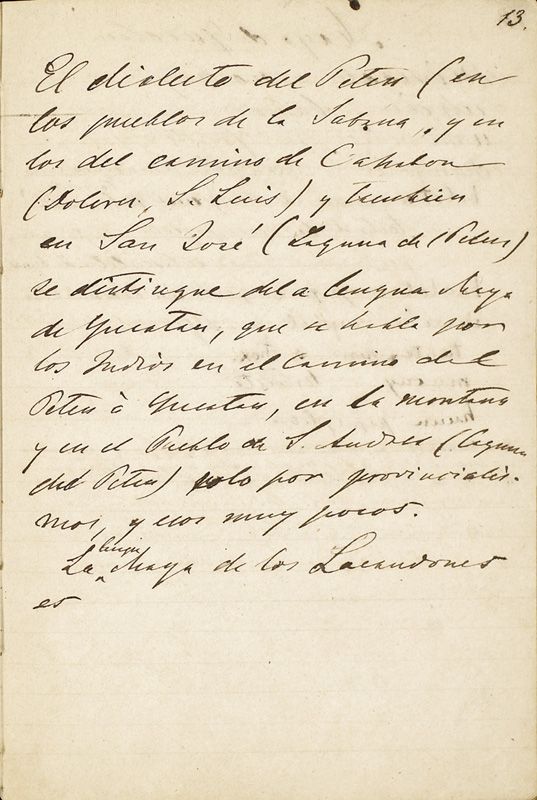 13.
El dialecto del Peten (en
los pueblos de la Sabana, y en
los del camino de Cahabon
(Dolores, S. Luis) y tambien
en San José (Laguna de Peten)
se distingue de la lengua Maya
de Yucatan, que se habla por
los Indios en el Camino del
Peten à Yucatan, en la montaña
y en el Pueblo de S. Andres (laguna
del Peten) solo por provincialis-
mos, y esos muy pocos.
lengua
La Maya de los Lacandones
es